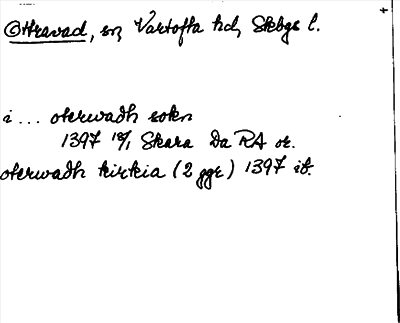 Ottravad, sn, Vartofta hd, Skbgs l.
i ... oterwadh sokn
1397 18/1 Skara Da RA or.
oterwadh kirkia (2 ggr) 1397 ib.